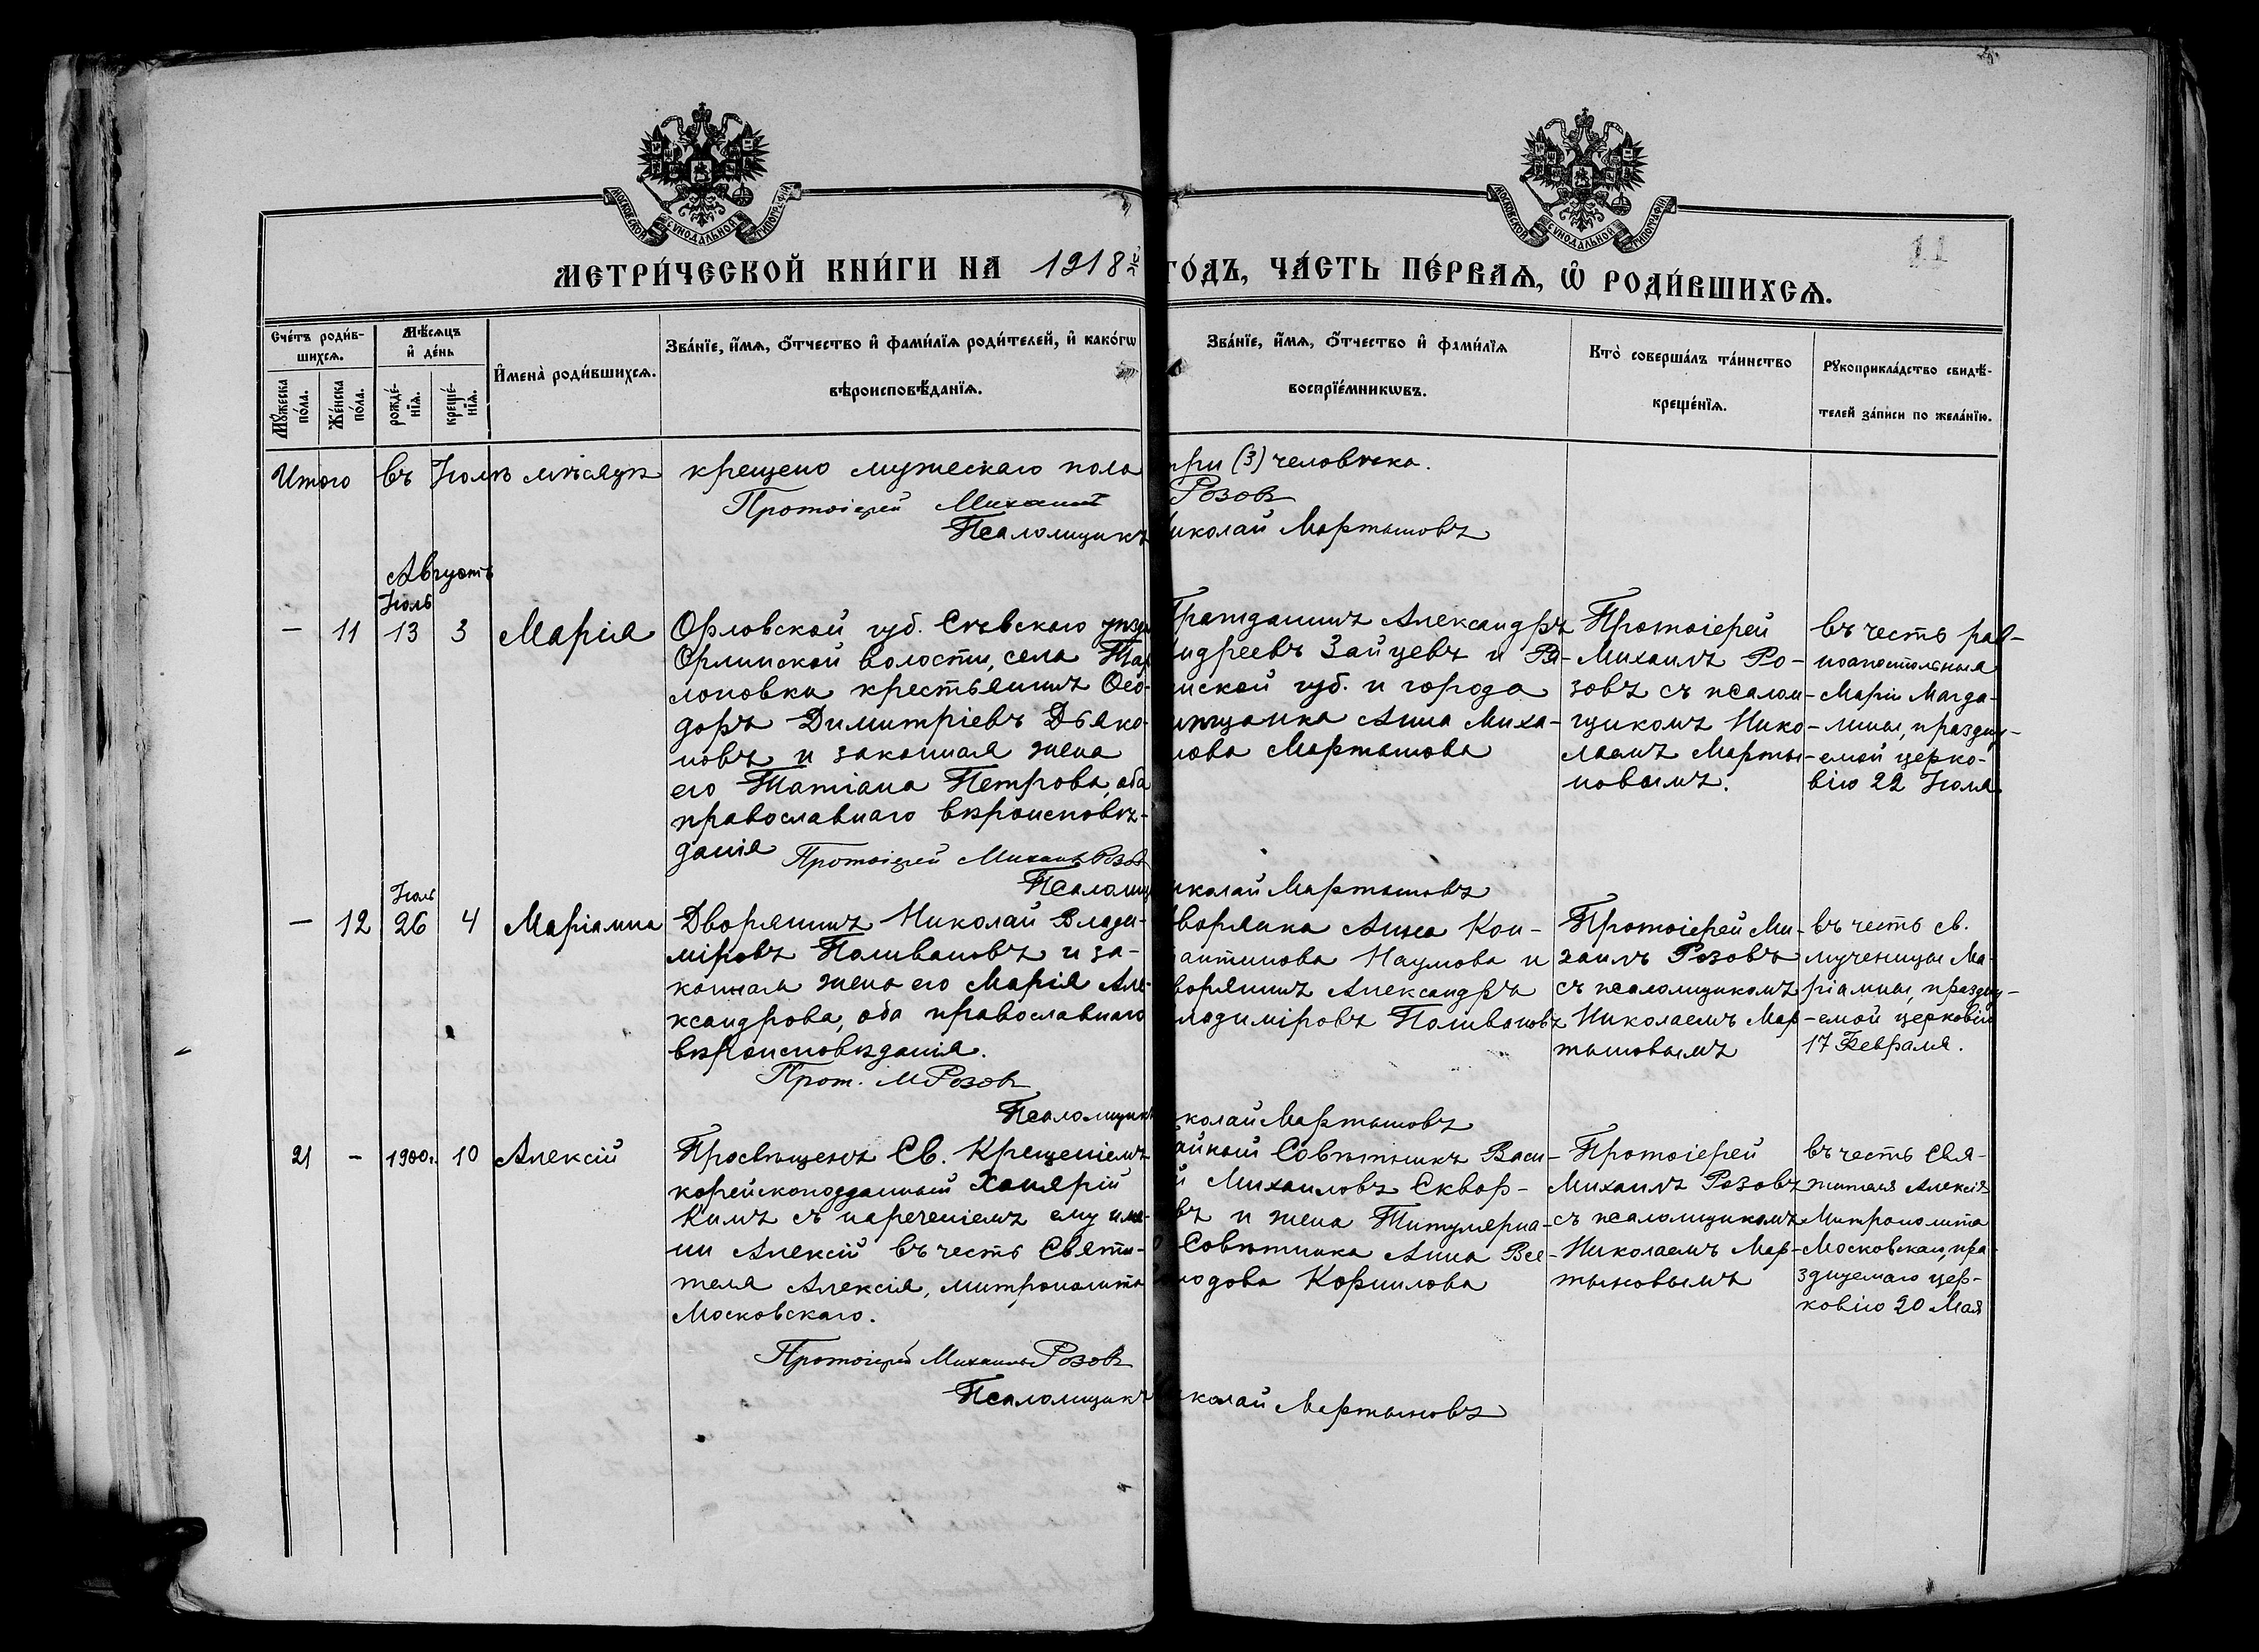 МОСКОВСКОЙ СѴНОДАЛЬНОЙ ТИПОГРАФІИ
МОСКОВСКОЙ СѴНОДАЛЬНОЙ ТИПОГРАФІИ
11
МЕТРИ́ЧЕСКОЙ КНИ́ГИ НА 1918й
ГО́ДЪ, ЧА́СТЬ ПЕ́РВАѦ, Ѡ҆ РОДИ́ВШИХСѦ.
Сче́тъ роди́в-
шихсѧ.
Мѣ́сѧцъ
и҆ де́нь
Мꙋ́жеска
по́ла.
Же́нска
по́ла.
рожде́-
нїѧ.
креще́-
нїѧ.
И҆мена̀ роди́вшихсѧ.
Зва́нїе, и҆́мѧ, ѻ҆́тчество и҆ фами́лїѧ роди́телей, и҆ како́гѡ
вѣроисповѣ́данїѧ.
Зва́нїе, и҆́мѧ, ѻ҆́тчество и҆ фами́лїѧ
воспрїе́мникѡвъ.
Кто̀ соверша́лъ та́инство
креще́нїѧ.
Рꙋкоприкла́дство свидѣ́-
телей за́писи по жела́нїю.
Итого въ Іюлѣ мѣсяцѣ крещено мужескаго пола
три (3) человѣка.
Протоіерей Михаилъ
Розовъ
Псаломщикъ
иколай Мартыновъ
Августъ
Іюль
— 11 13 3 Марія
Орловской губ. Сѣвскаго уѣзд
Орлинской волости, села
лоповки крестьянинъ Ѳео-
доръ Димитріевъ Дьяко-
новъ и законная жена
его Татіана Петрова, оба
православнаго вѣроисповѣ-
данія
Протоіерей Михаилъ Розовъ
Гражданинъ Александръ
ндреевъ Зайцевъ и Ря-
нской губ. и города
ѣщанка Анна Миха-
лова Мартынова
Протоіерей
Михаилъ Ро-
зовъ съ псалом-
щикомъ Нико-
лаемъ Марты-
новымъ.
въ честь рав-
ноапостольныя
Маріи Магда-
лины, праздну-
емой церко-
вію 22 Іюля.
Псаломщ
иколай Мартыновъ
Іюль
— 12 26 4 Маріамна
Дворянинъ Николай Влади-
міровъ Поливановъ и за-
конная жена его Марія Але-
ксандрова, оба православнаго
вѣроисповѣданія.
Прот. М Розовъ
Псаломщикъ
воряна Анна Кон-
антинова Наумова и
ворянинъ Александръ
ладиміровъ Поливановъ
иколай Мартыновъ
Протоіерей Ми-
хаилъ Розовъ
съ псаломщикомъ
Николаемъ Мар-
тыновымъ
въ честь св.
мученицы Ма-
ріамны, праздну-
емой церковію
17 Февраля.
21 — 1900г. 10 Алексій
Просвѣщенъ Св. Крещеніемъ
корейскоподданный Ханярій
Кимъ съ нареченіемъ ему име-
ни Алексій въ честь Святи-
теля Алексія, митрополита
Московскаго.
айный Совѣтникъ Васи-
й Михаиловъ Сквор-
въ и жена Титулярна-
Совѣтника Анна Все-
лодова Корнилова
Протоіерей
Михаилъ Розовъ
съ псаломщикомъ
Николаемъ Мар-
тыновымъ
въ честь Свя-
тителя Алексія
Митрополита
Московскаго, пра-
зднуемаго цер-
ковію 20 Мая
Протоіерей Михаилъ Розовъ
Псаломщикъ
иколай Мартыновъ